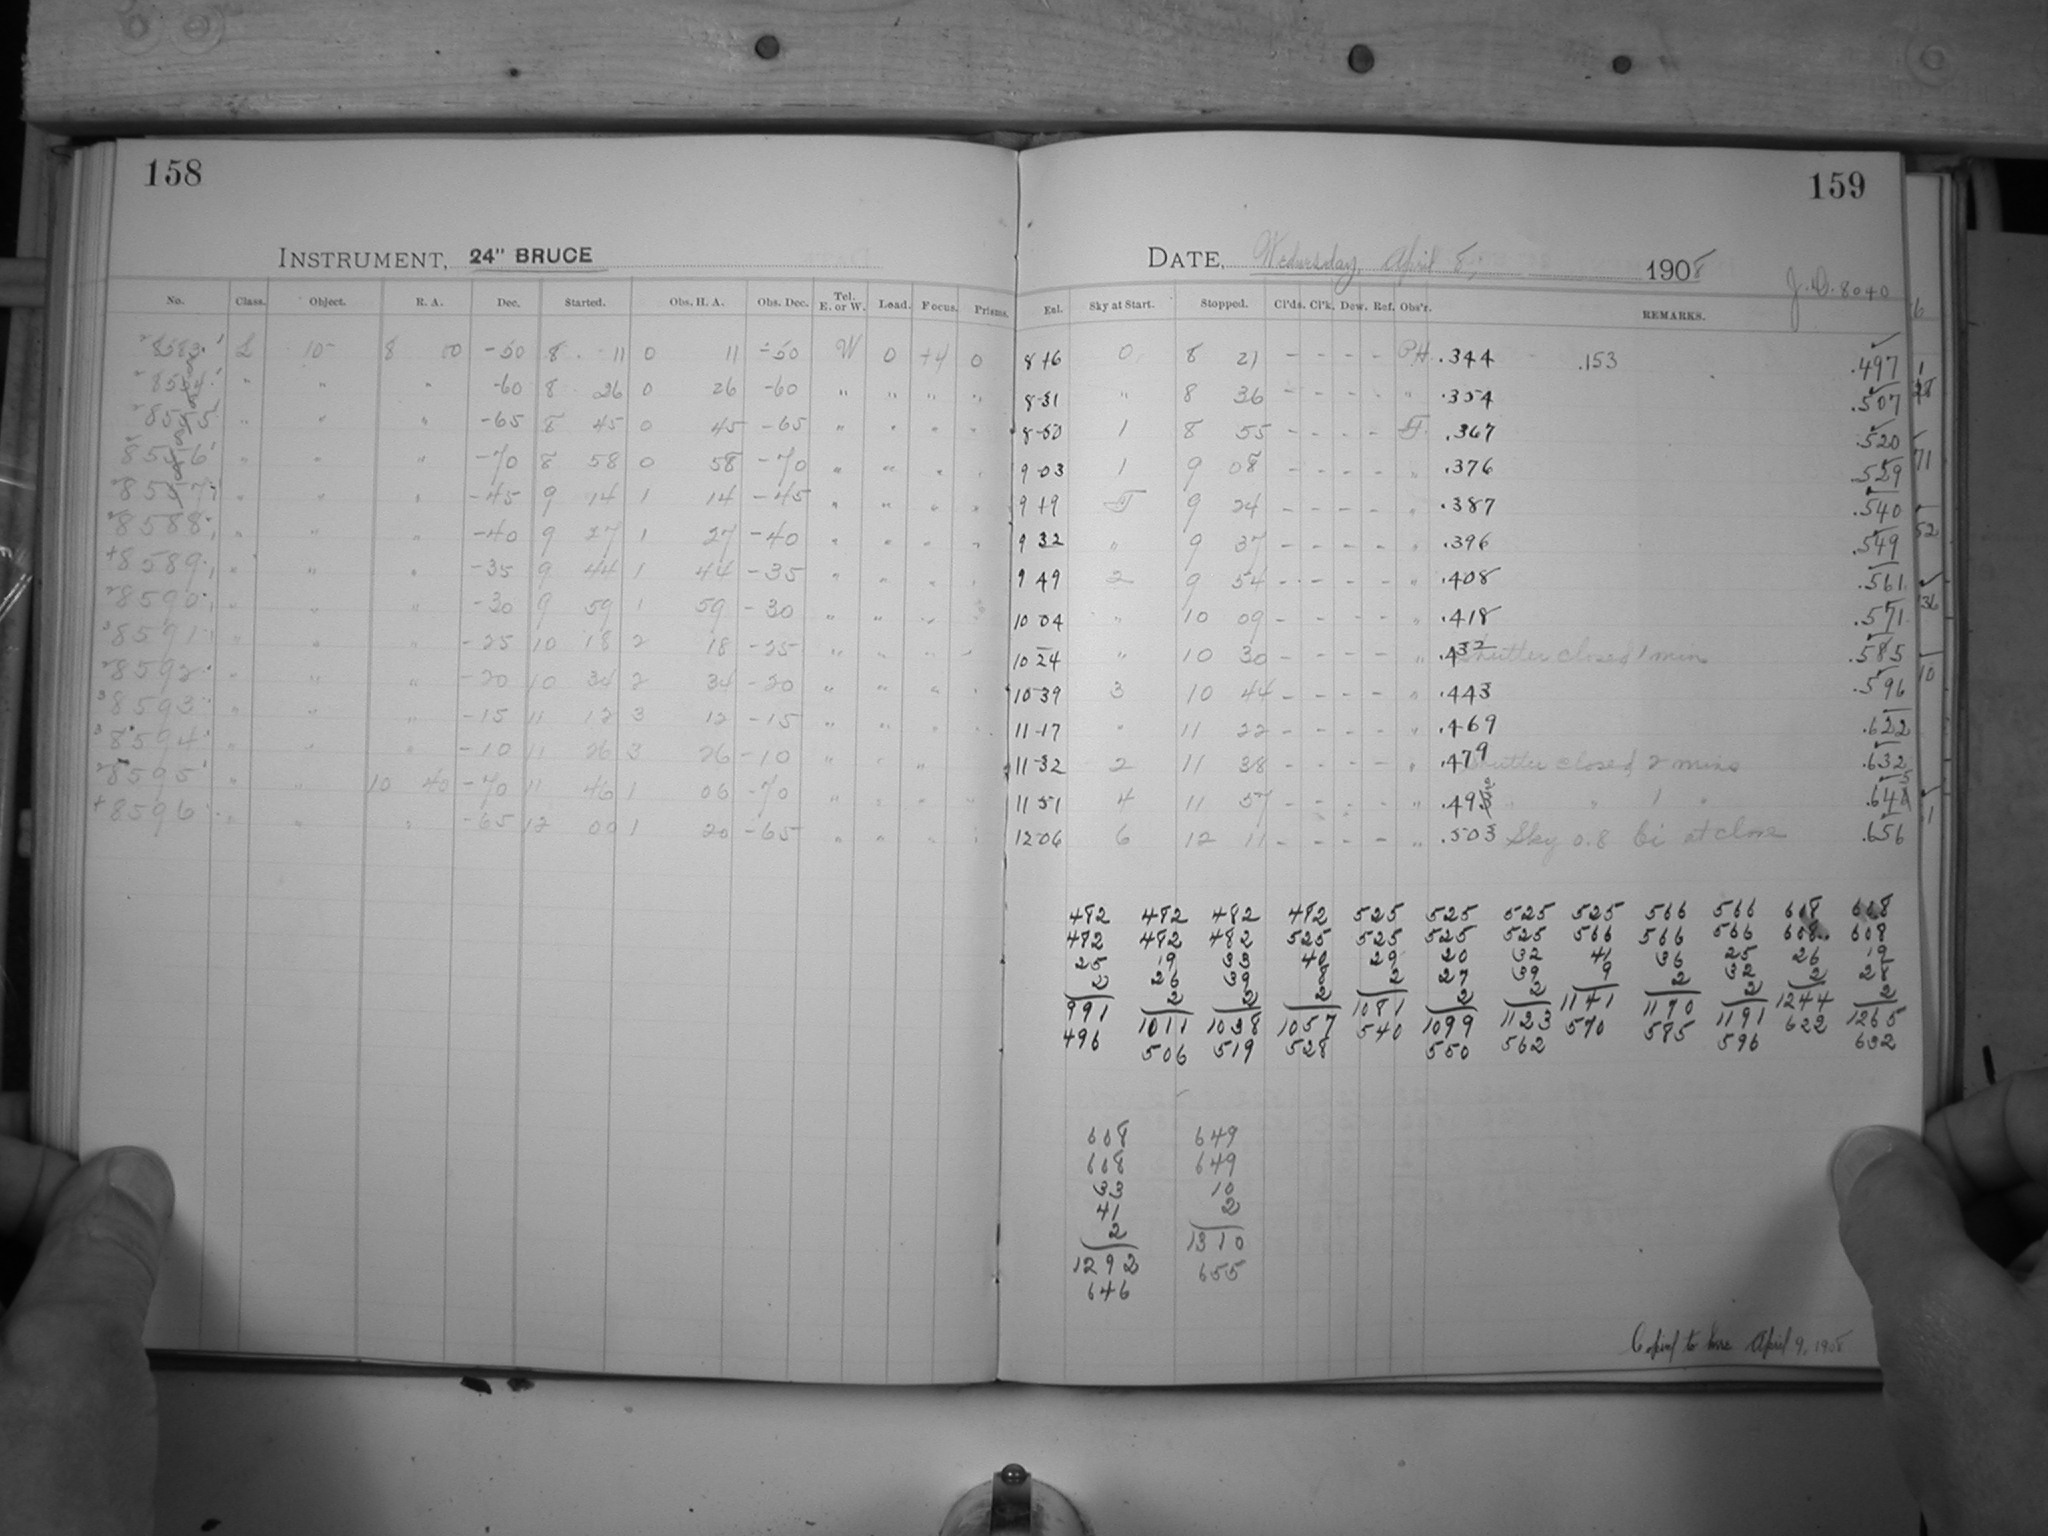 158
INSTRUMENT, 24" BRUCE
No. Class. Object. R. A. Dec. Started. Obs. H. A. Obs. Dec. Tel. E. or W. Load. Focus. Prisms.
8583 L 10 8 00 -50 8 11 0 11 -50 W 0 +4 0
" " " -60 8 26 0 26 -60 " " " "
" " " -65 8 45 0 45 -65 " " " "
" " " -70 8 58 0 58 -70 " " " "
" " " -45 9 14 1 14 -45 " " " "
8588 " " " -40 9 27 1 27 -40 " " " "
8589 " " " -35 9 44 1 44 -35 " " " "
8590 " " " -30 9 59 1 59 -30 " " " "
8591 " " " -25 10 18 2 18 -25 " " " "
8592 " " " -20 10 34 2 34 -20 " " " "
8593 " " " -15 11 12 3 12 -15 " " " "
8594 " " " -10 11 26 3 26 -10 " " " "
8595 " " 10 40 -70 11 46 1 06 -70 " " " "
8596 " " " -65 12 00 1 20 -65 " " " "
159
DATE, Wednesday, April 8, 1908
J.D. 8040
Exl. Sky at Start. Stopped. Cl'ds. Cl'k. Dew. Ref. Obs'r. REMARKS.
8 16 0 8 21 - - - - .344 .153 .497
8 31 " 8 36 - - - - " .354 .507
8 50 1 8 55 - - - - .367 .520
9 03 1 9 08 - - - - " .376 .529
9 19 9 24 - - - - " .387 .540
9 32 " 9 37 - - - - " .396 .549
9 49 2 9 54 - - - - " .408 .561
10 04 " 10 09 - - - - " .418 .571
10 24 " 10 30 - - - - " .432 Shutter closed 1 min .585
10 39 3 10 44 - - - - " .443 .596
11 17 " 11 22 - - - - " .469 .622
11 32 2 11 38 - - - - " .479 Shutter closed 2 mins .632
11 51 4 11 57 - - - - " .492 " " 1 " .645
12 06 6 12 11 - - - - " .503 Sky 0.8 Ci at close .656
482 482 482 482 525 525 525 525 566 566 608 608
482 482 482 525 525 525 525 566 566 566 608 608
25 19 33 40 29 20 32 41 36 25 26 19
2 26 39 8 2 27 39 9 2 32 2 28
991 2 2 2 1081 2 2 1141 1170 2 1244 2
496 1011 1038 1057 540 1099 1123 570 585 1191 622 1265
506 519 528 550 562 596 632
608 649
608 649
33 10
41 2
2 1310
1292 655
646
Copied to here April 9, 1908